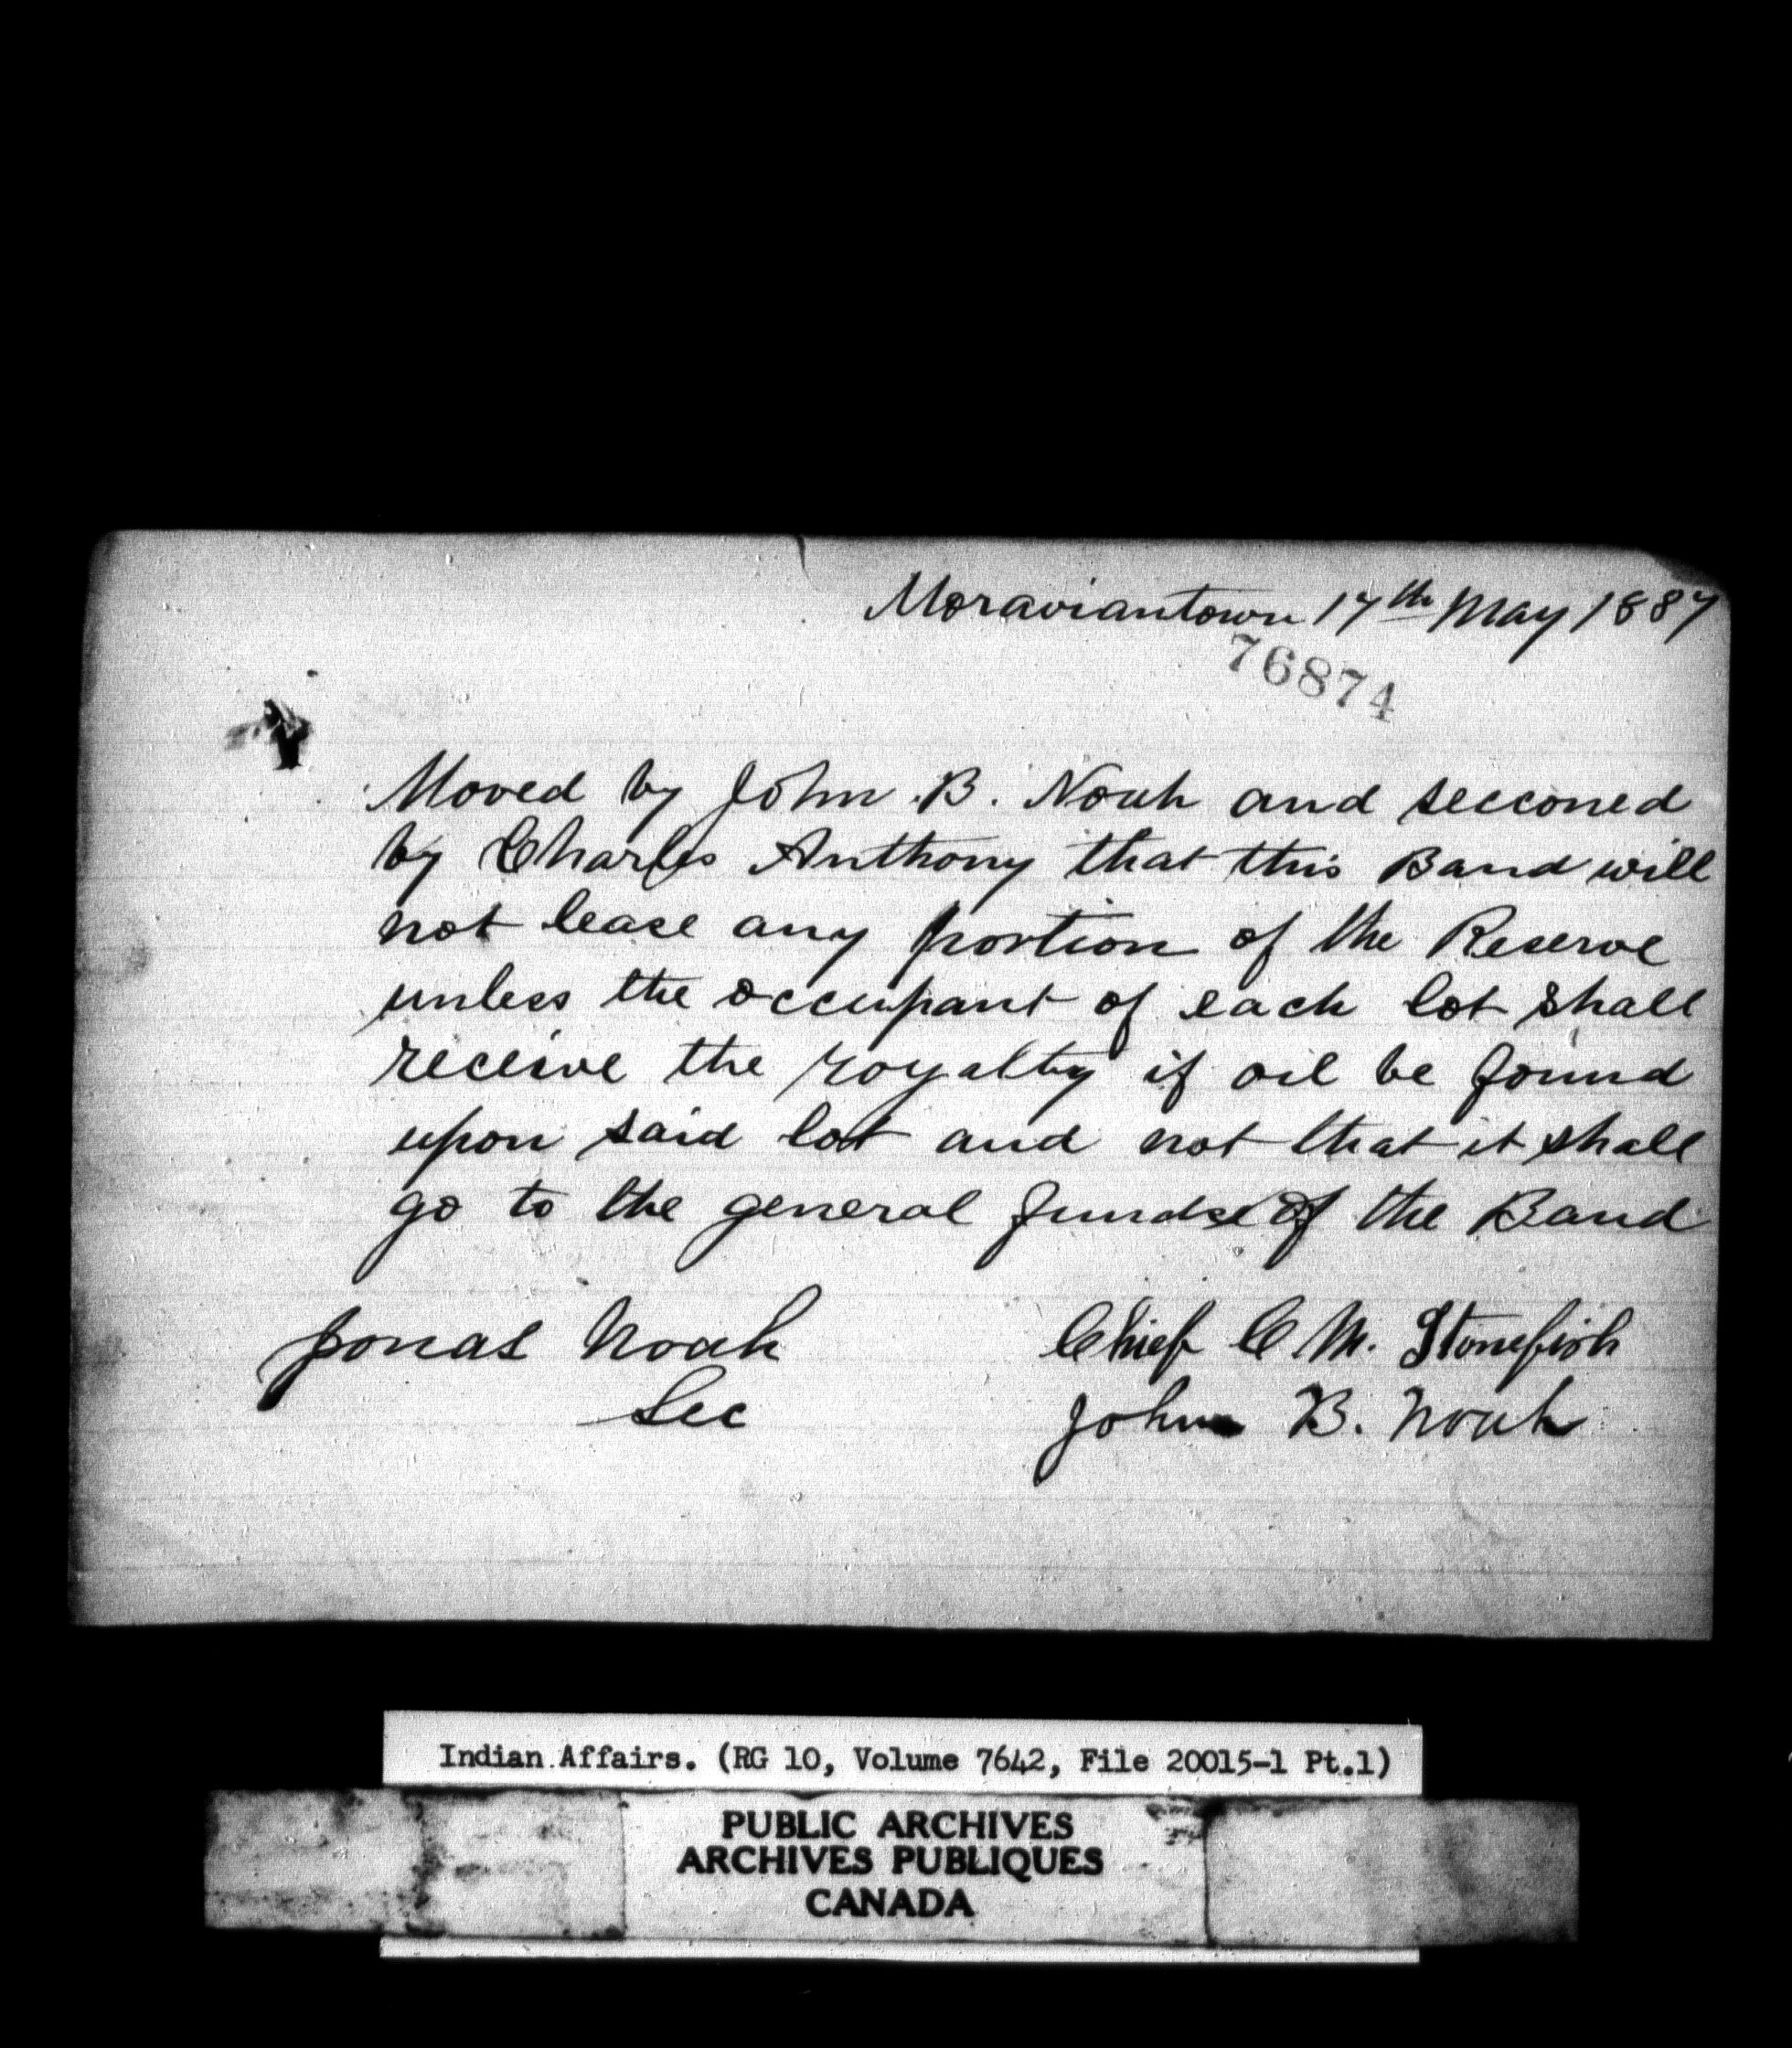 Moraviantown 17th May 1887
76874
Moved by John B. Noah and secconed
by Charles Anthony that this Band will
not lease any portion of the Reserve
unless the occupant of each lot shall
receive the royalty if oil be found
upon said lot and not that it shall
go to the general funds of the Band
Jonas Noah
Sec
Chief C M. Stonefish
John B. Noah
Indian Affairs. (RG 10, Volume 7642, File 20015-1 Pt.1)
PUBLIC ARCHIVES
ARCHIVES PUBLIQUES
CANADA